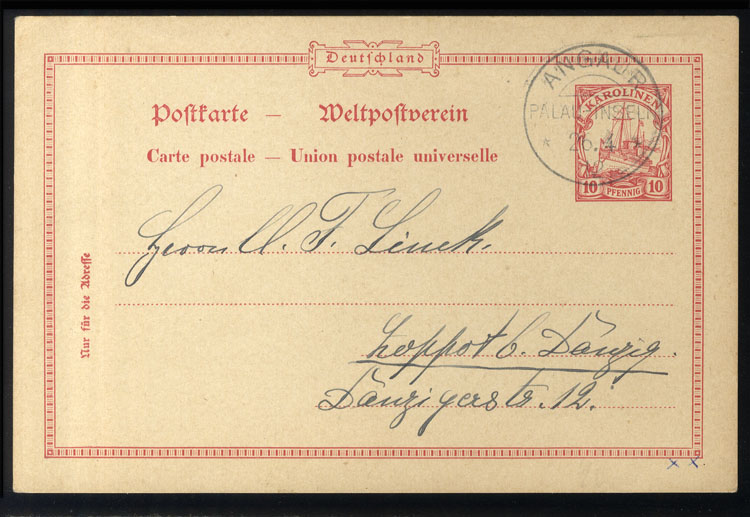 Deutschland
ANGAUR
PALAU-INSELN
* 26.4 *
KAROLINEN
10 PFENNIG 10
Postkarte — Weltpostverein
Carte postale — Union postale universelle
Herrn A. F. Linck.
Zoppot b. Danzig.
Danzigerstr. 12.
Nur für die Adresse